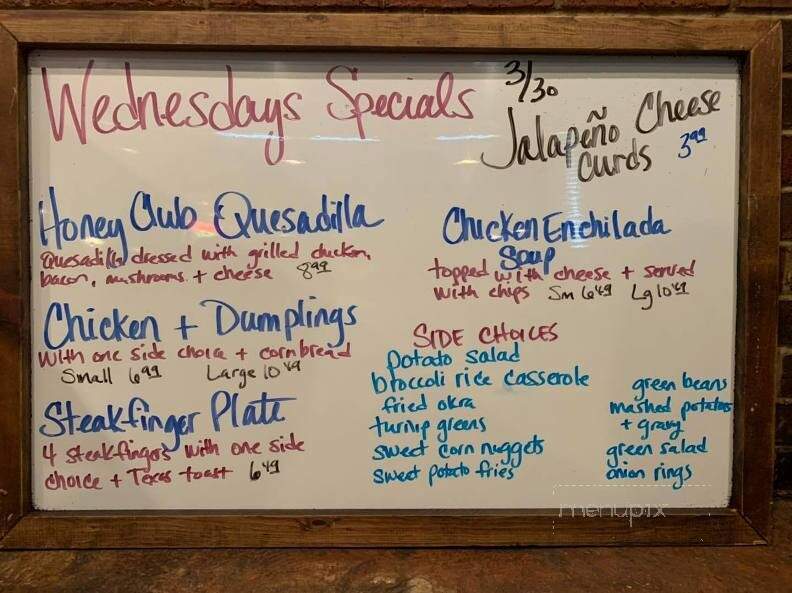 Wednesdays Specials
3/30
Jalapeño Cheese
Curds 3.99
Honey Club Quesadilla
Quesadilla dressed with grilled chicken,
bacon, mushrooms + cheese 8.99
Chicken + Dumplings
with one side choice + cornbread
Small 6.99 Large 10.49
Steakfinger Plate
4 steakfingers with one side
choice + Texas toast 6.49
Chicken Enchilada
Soup
topped with cheese + served
with chips Sm 6.49 Lg 10.49
SIDE CHOICES
potato salad
broccoli rice casserole
fried okra
turnip greens
sweet corn nuggets
sweet potato fries
green beans
mashed potatoes
+ gravy
green salad
onion rings
menupix